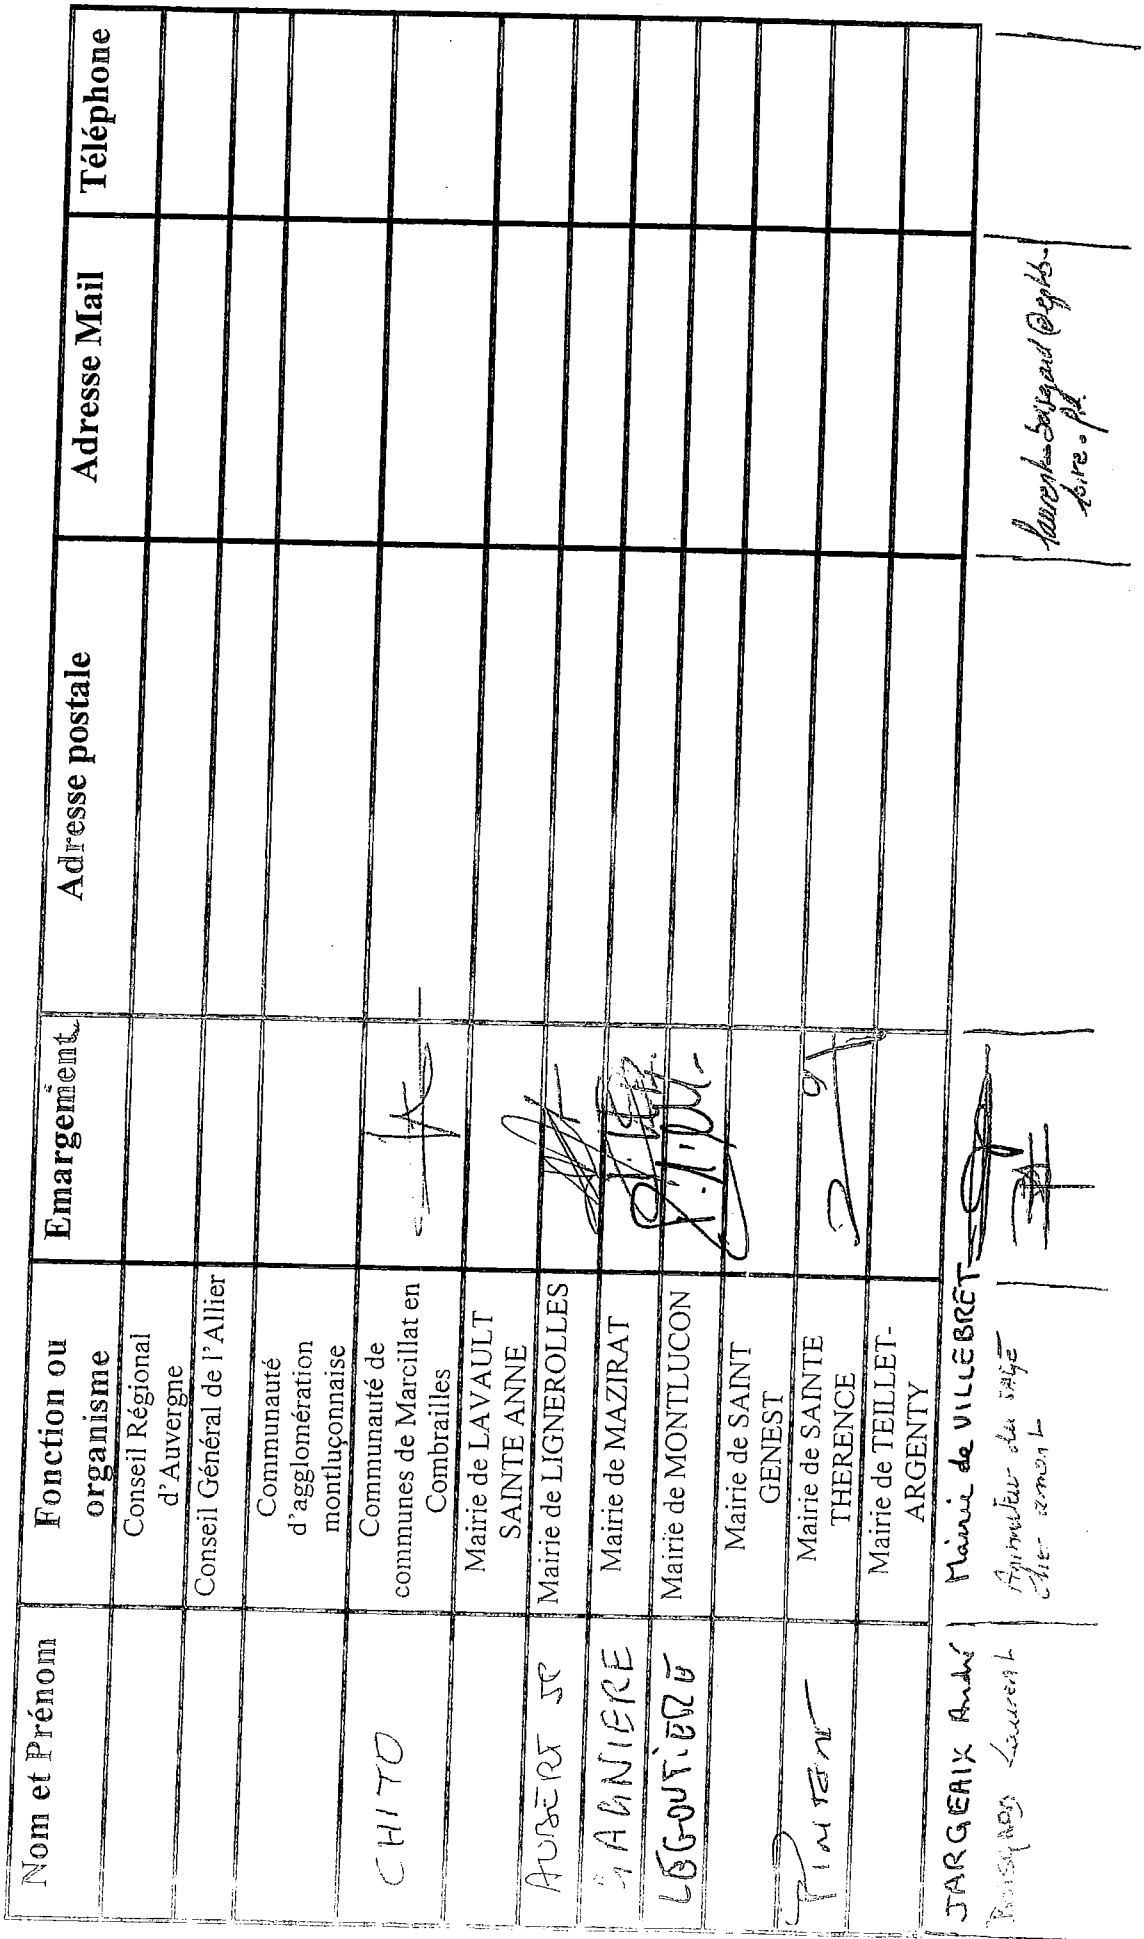 Nom et Prénom
Fonction ou
organisme
Emargement
Adresse postale
Adresse Mail
Téléphone
Conseil Régional
d'Auvergne
Conseil Général de l'Allier
Communauté
d'agglomération
montluçonnaise
CHITO
Communauté de
communes de Marcillat en
Combrailles
Mairie de LAVAULT
SAINTE ANNE
AUBERT JP
Mairie de LIGNEROLLES
GAGNIERE
Mairie de MAZIRAT
LEGOUTIERE
Mairie de MONTLUCON
Mairie de SAINT
GENEST
Mairie de SAINTE
THERENCE
Mairie de TEILLET-
ARGENTY
JARGEAIX André
Mairie de VILLEBRET
Laurent
Animateur du SAGE
Cher amont
loire.fr